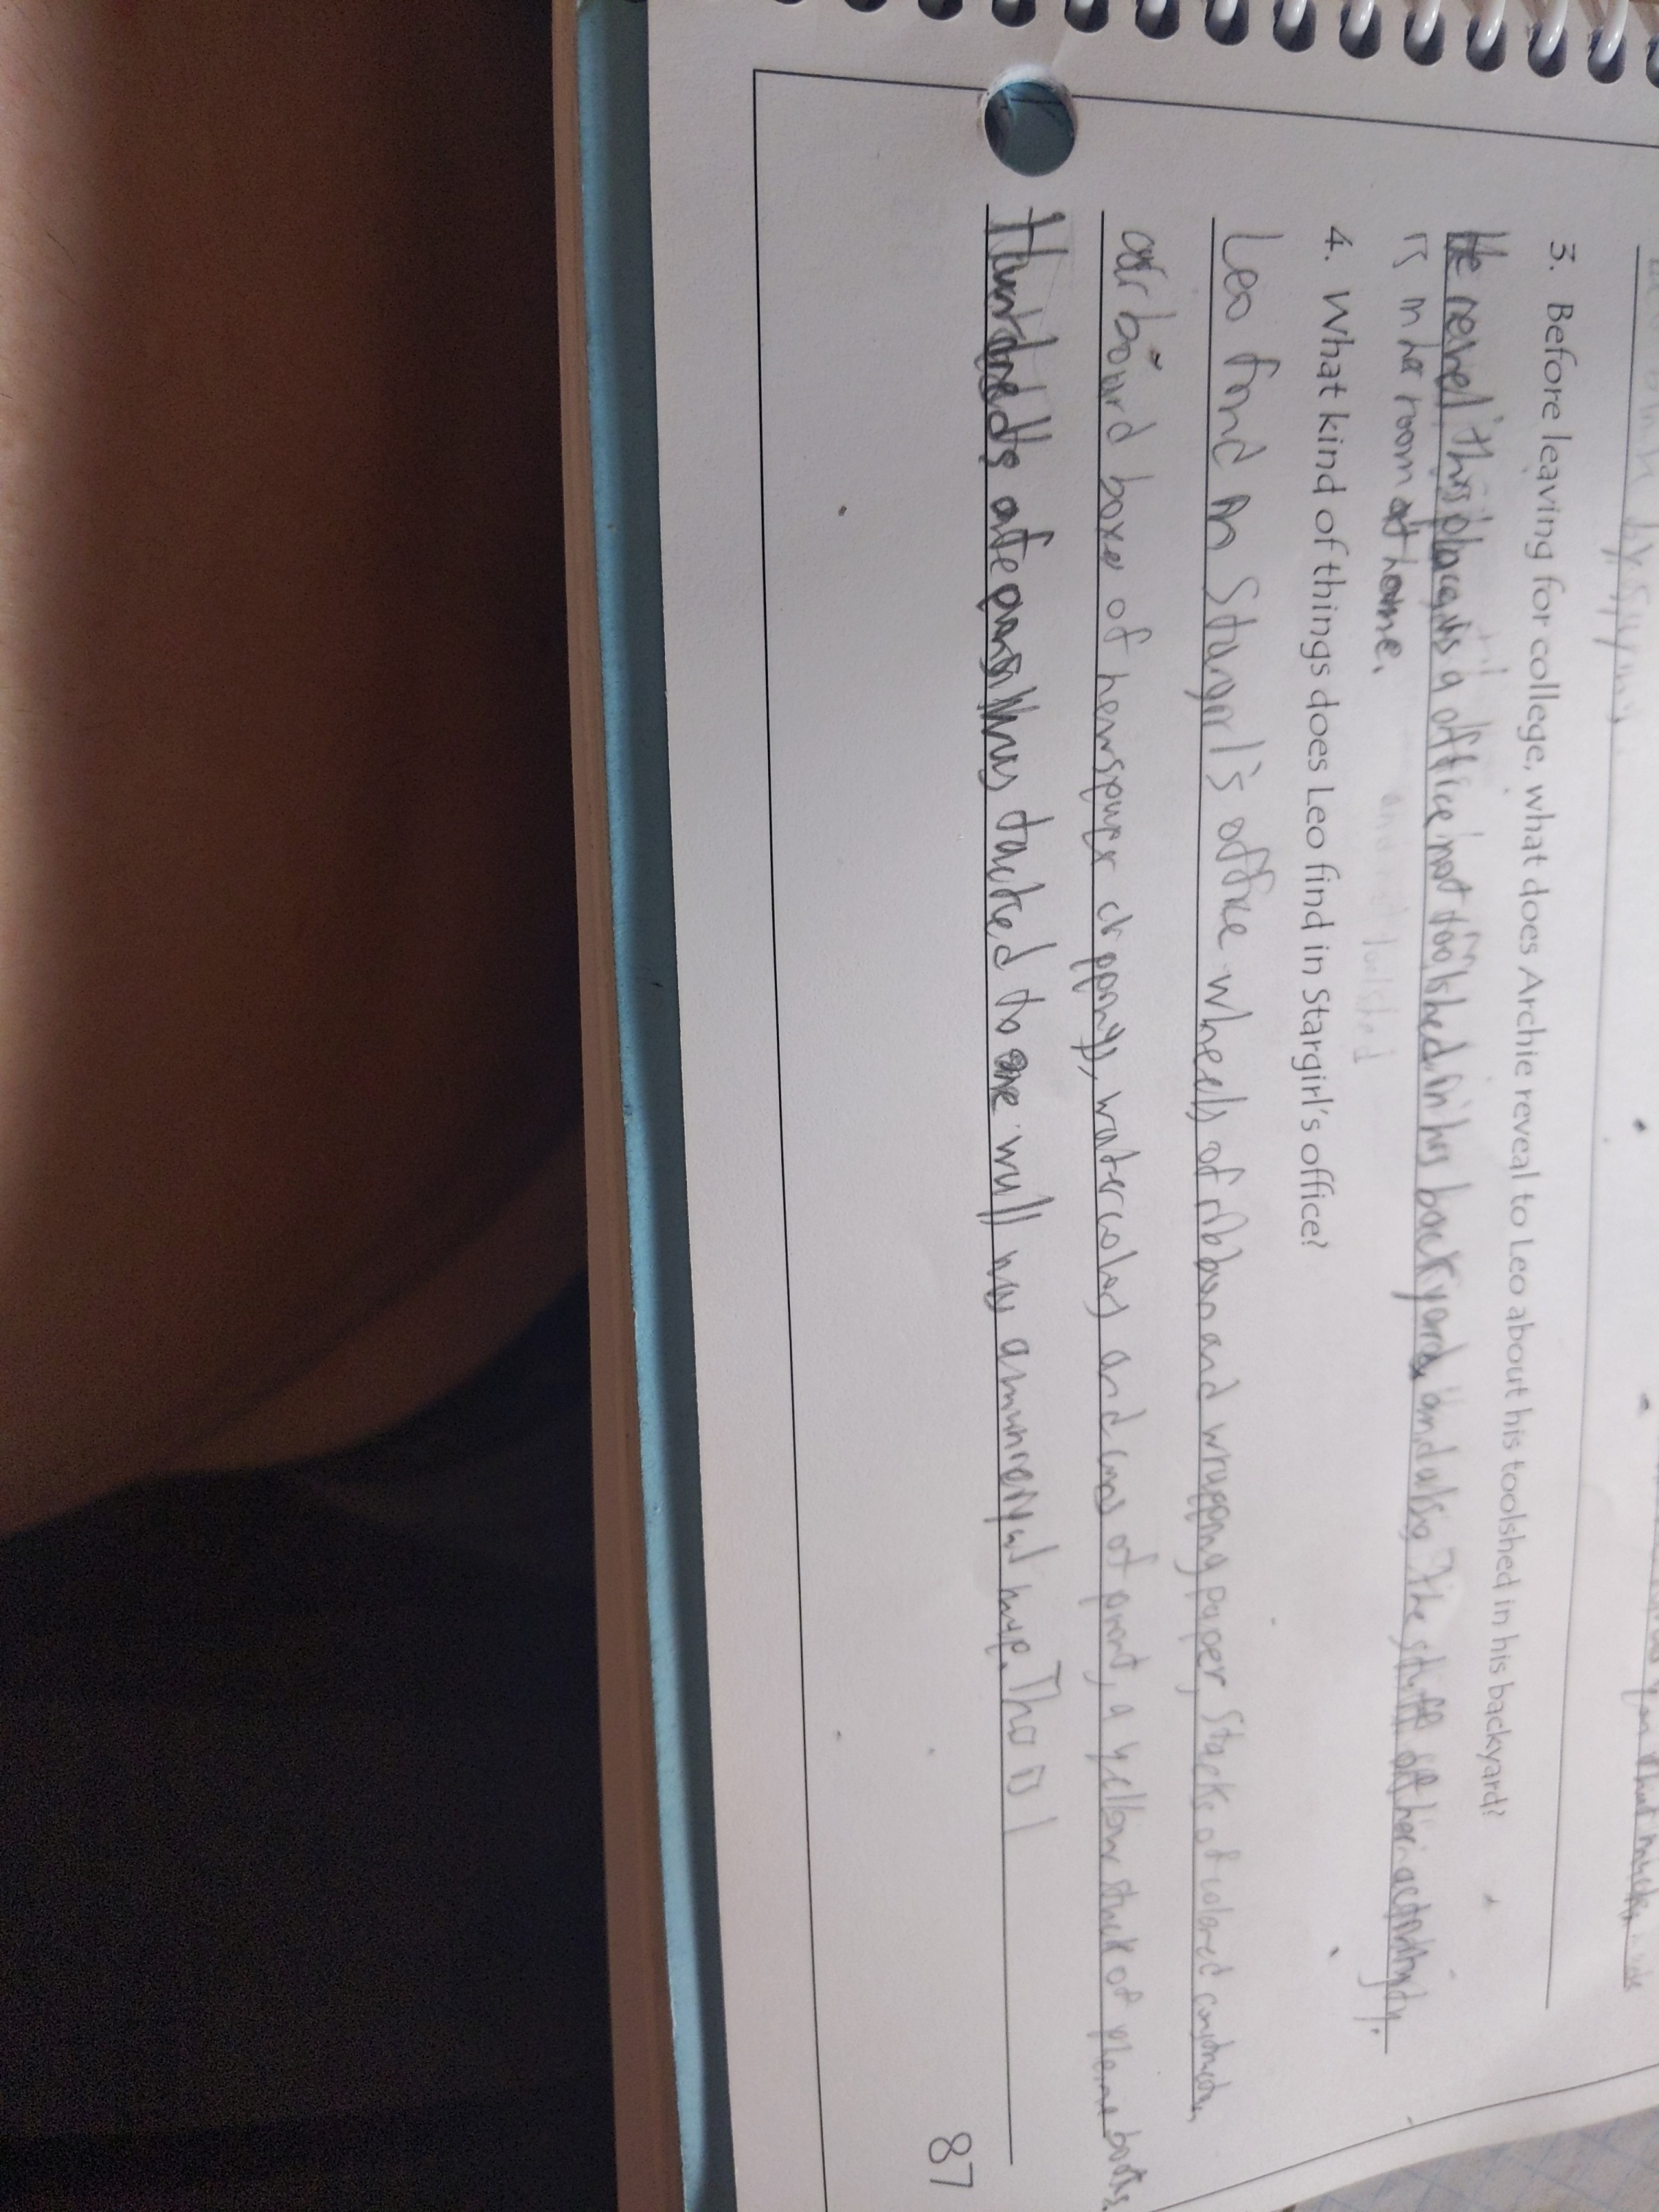 3. Before leaving for college, what does Archie reveal to Leo about his toolshed in his backyard?
He reveal this place is a office not toolshed in his backyard, and also, The stuff of her activity.
is in her room at home.
4. What kind of things does Leo find in Stargirl's office?
Leo find in Stargirl's office wheels of ribbon and wrapping paper, stacks of colored
car board boxe of newspaper clippings, watercolors and cans of paint, a yellow stack of phone books.
Hundreds of tacked to one wall was a municipal map.
87